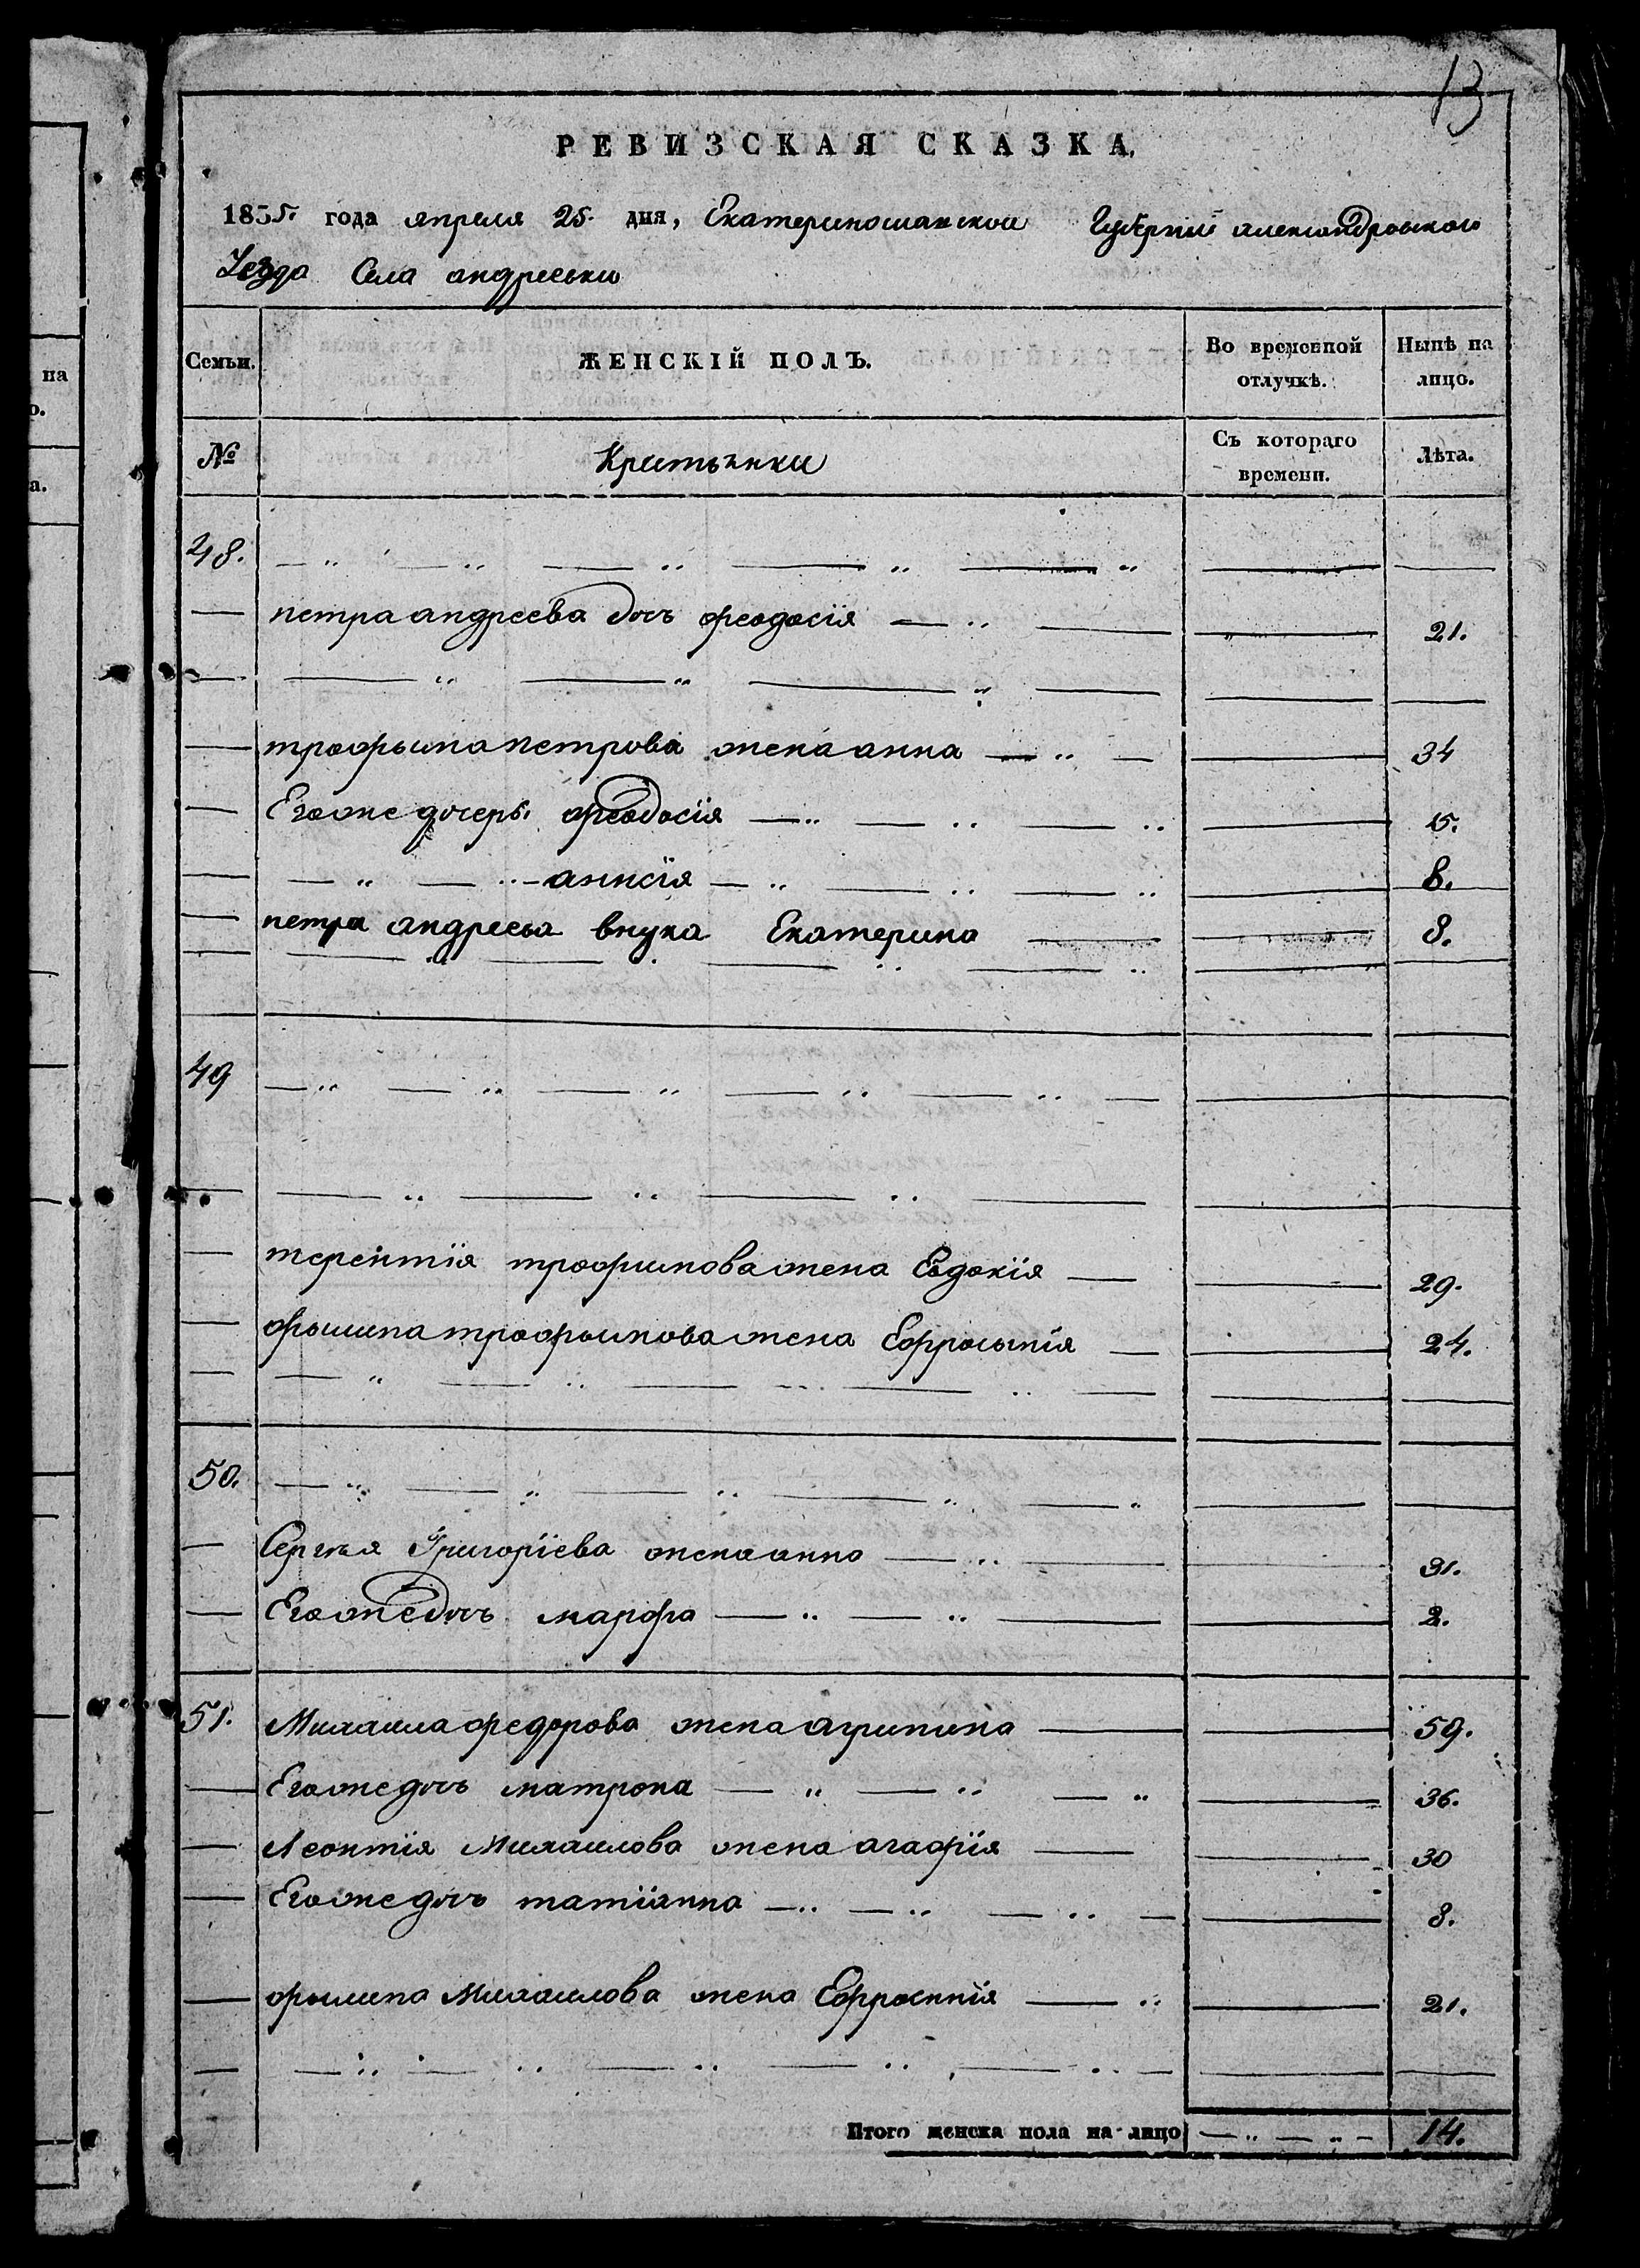 13
РЕВИЗСКАЯ СКАЗКА,
1835. года апреля 25. дня, Екатеринославской Губерніи александровского
Уезда Села андреевки
Семьи. ЖЕНСКІЙ ПОЛЪ. Во временной отлучкѣ. Нынѣ на лицо.
№ Крестьянки Съ котораго времени. Лѣта.
48.
петра андреева дочь феодосія 21.
трофыма петрова жена анна 34
Егоже дочеръ. феодосія 15.
анисія 8.
петра андреева внука Екатерина 8.
49
терентія трофимова жена Евдокія 29.
фылипа трофымова жена Ефросынія 24.
50.
Сергѣя Григоріева жена анна 31.
Егоже дочь марфа 2.
51. Михаила федорова жена агрипина 59.
Егоже дочь матрона 36.
Леонтія Михаилова жена агафія 30
Егоже дочь татіанна 8.
фылипа Михаилова жена Ефросинія 21.
Итого женска пола на лицо 14.
на
о.
а.